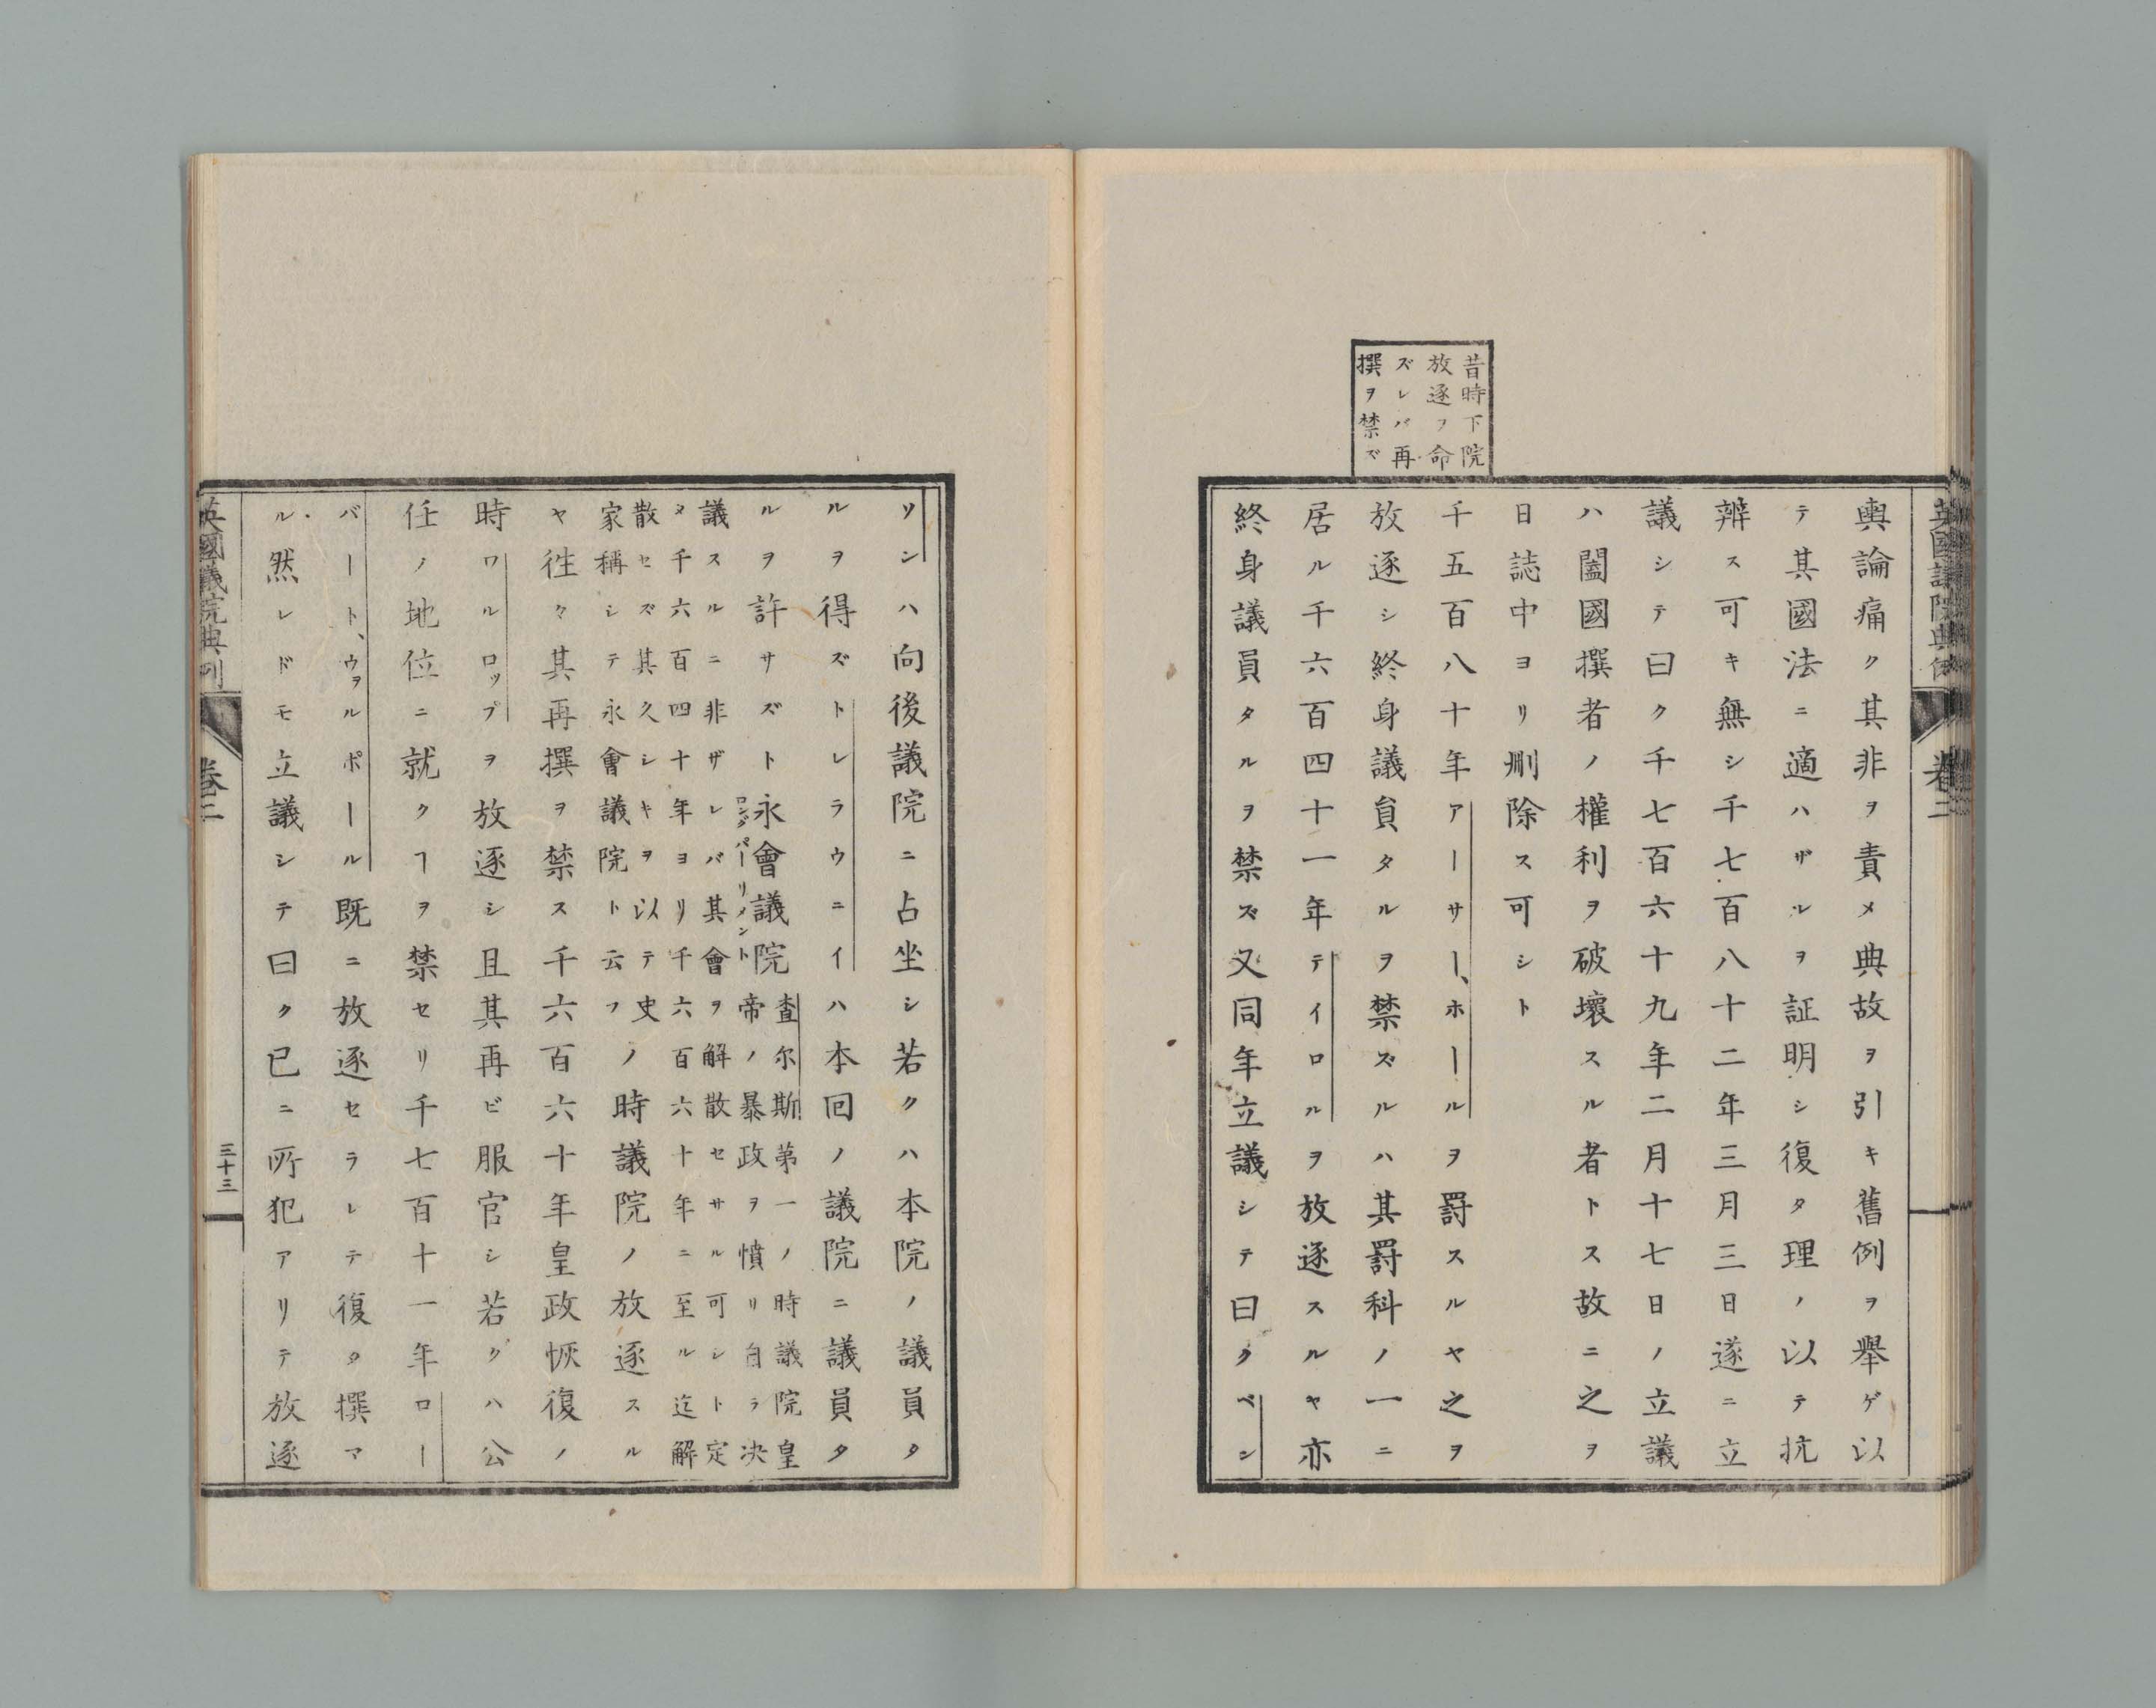 英國議院典例
卷二
輿論痛ク其非ヲ責メ典故ヲ引キ舊例ヲ擧ゲ以
テ其國法ニ適ハザルヲ証明シ復タ理ノ以テ抗
辨ス可キ無シ千七百八十二年三月三日遂ニ立
議シテ曰ク千七百六十九年二月十七日ノ立議
ハ闔國撰者ノ權利ヲ破壞スル者トス故ニ之ヲ
日誌中ヨリ刪除ス可シト
昔時下院
放逐ヲ命
ズレバ再
撰ヲ禁ズ
千五百八十年アーサー、ホールヲ罸スルヤ之ヲ
放逐シ終身議貟タルヲ禁ズルハ其罸科ノ一ニ
居ル千六百四十一年テイロルヲ放逐スルヤ亦
終身議員タルヲ禁ズ又同年立議シテ曰クベン
ソンハ向後議院ニ占坐シ若クハ本院ノ議員タ
ルヲ得ズトレラウニイハ本囘ノ議院ニ議員タ
ルヲ許サズト永會議院
ロングパーリメント
査尓斯第一ノ時議院皇
帝ノ暴政ヲ憤リ自ラ决
議スルニ非ザレバ其會ヲ解散セサル可シト定
タ千六百四十年ヨリ千六百六十年ニ至ル迄解
散セズ其久シキヲ以テ史
家稱シテ永會議院ト云フ
ノ時議院ノ放逐スル
ヤ徃々其再撰ヲ禁ス千六百六十年皇政恢復ノ
時ワルロップヲ放逐シ且其再ビ服官シ若クハ公
任ノ地位ニ就クヿヲ禁セリ千七百十一年ロー
バート、ウヲルポール既ニ放逐セラレテ復タ撰マ
ル然レドモ立議シテ曰ク已ニ所犯アリテ放逐
英國議院典例
卷二
三十三